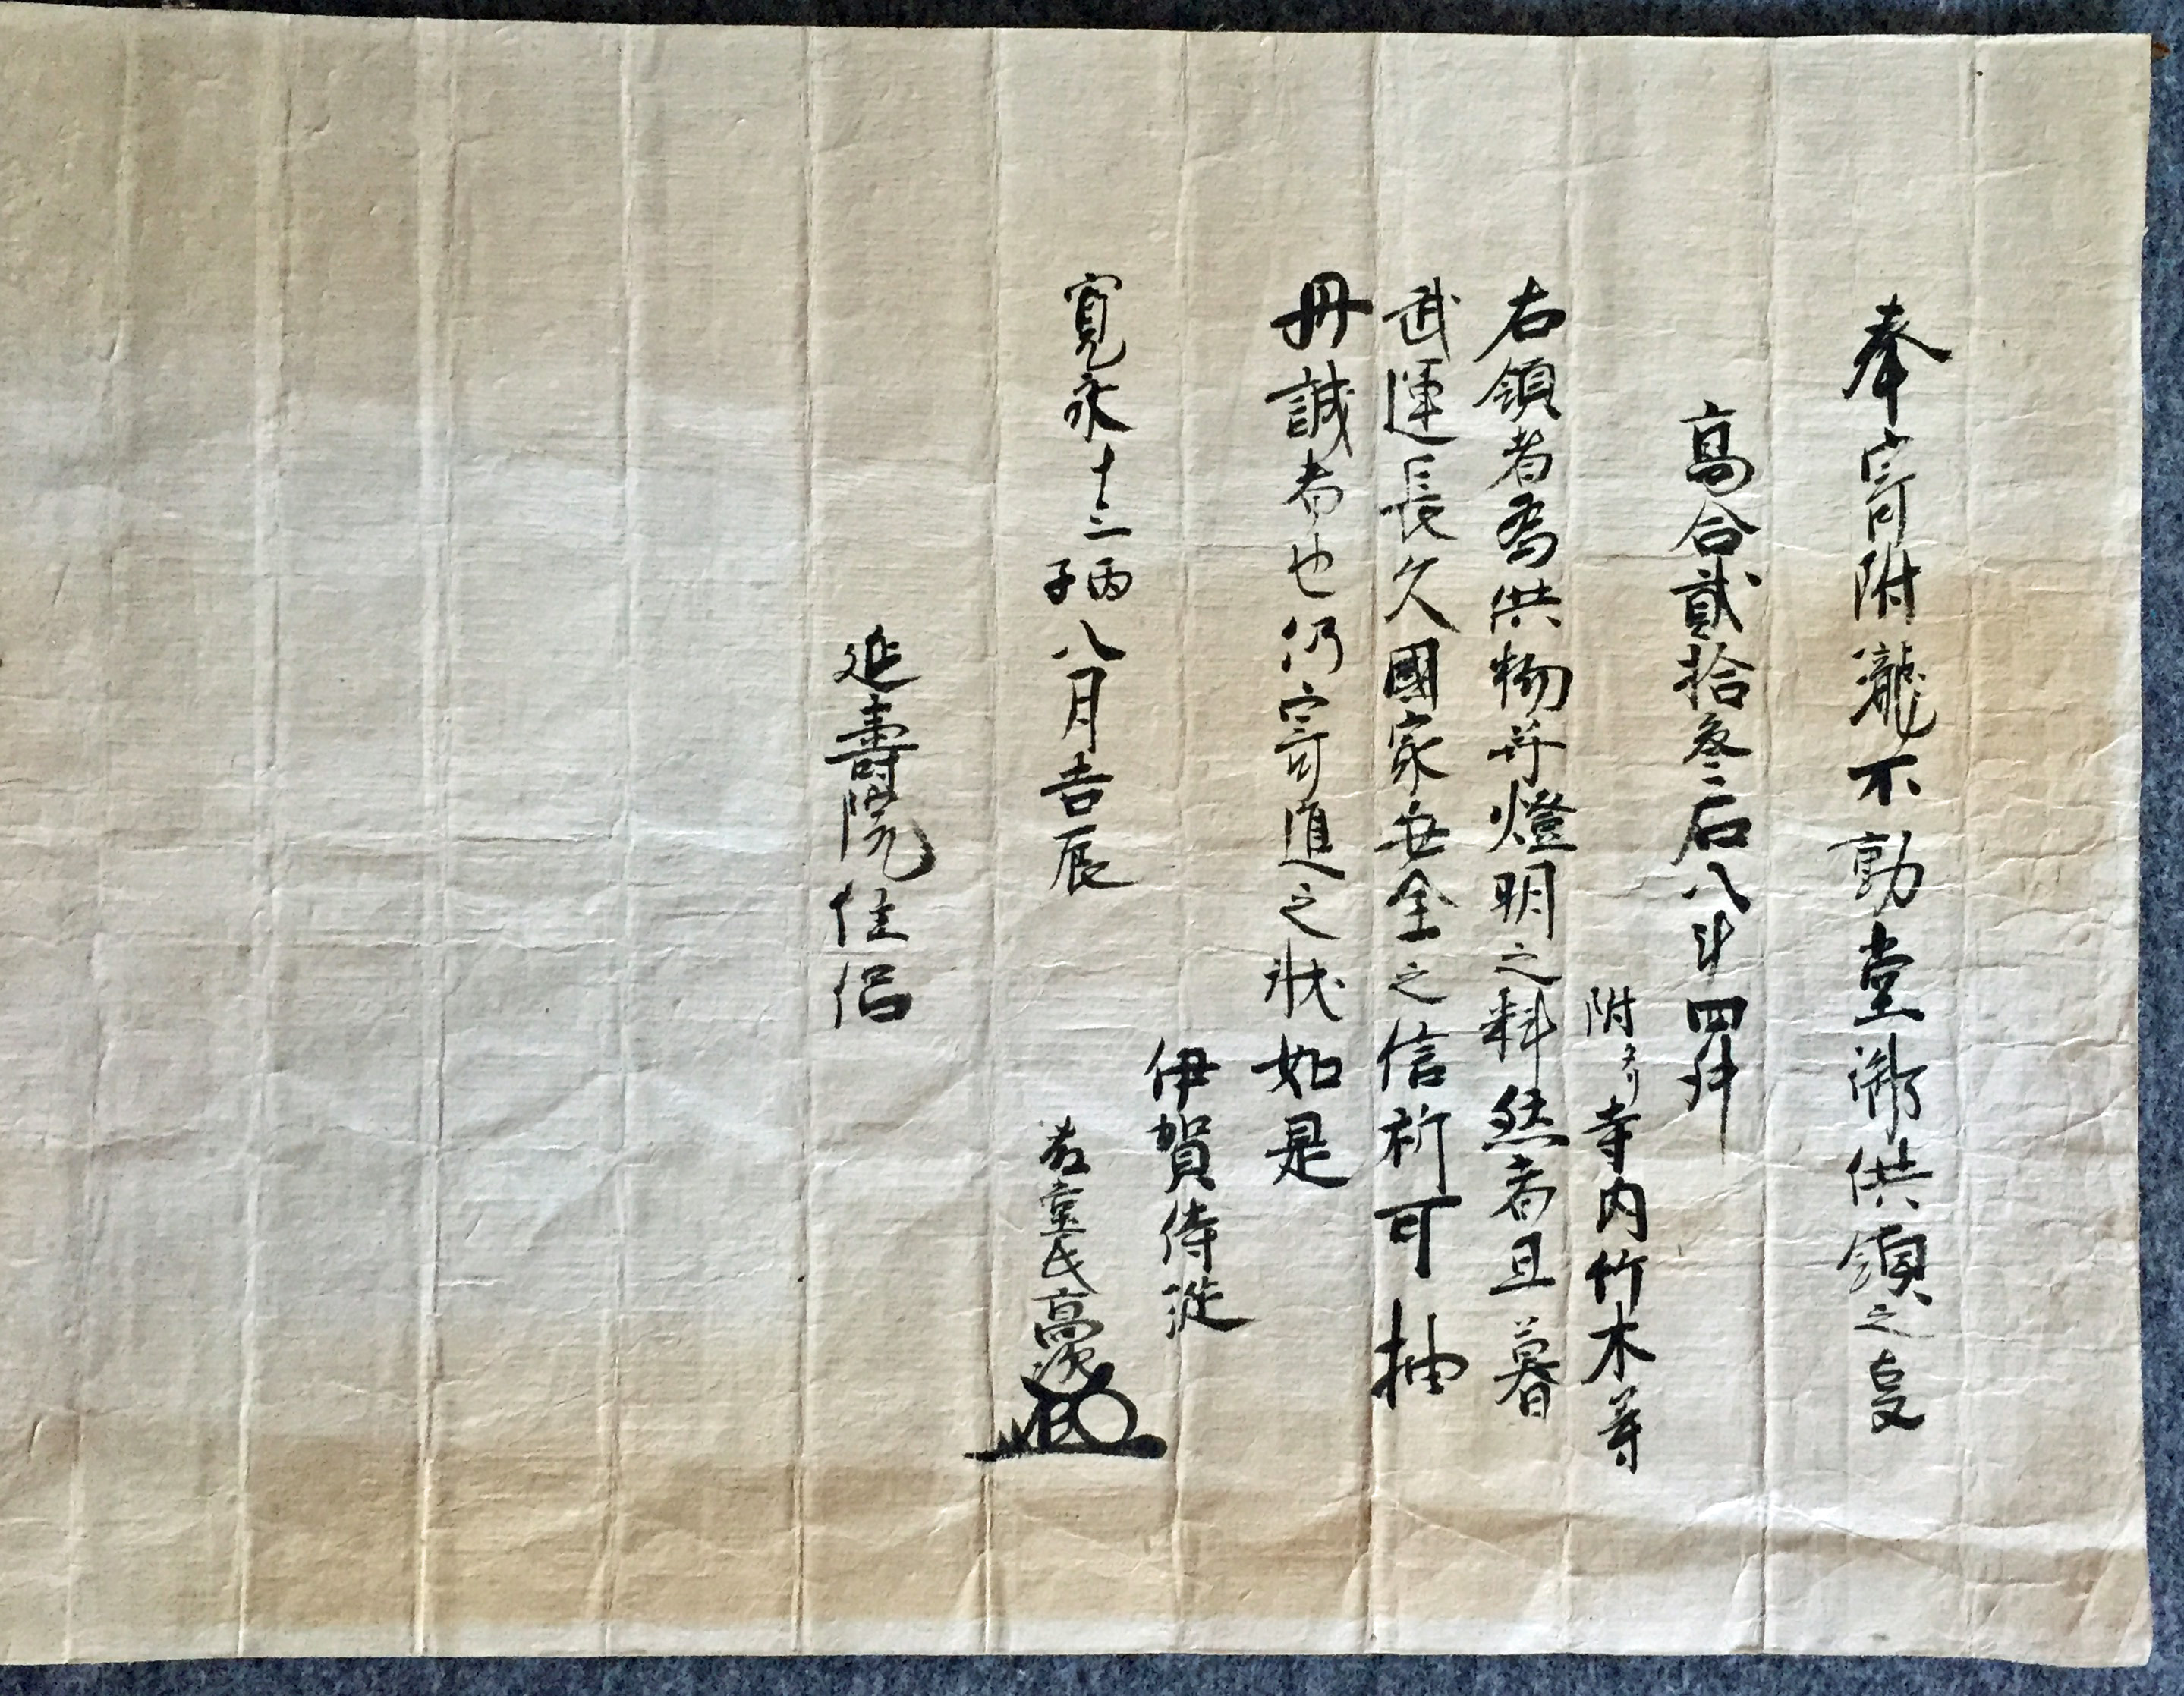 奉寄附瀧不動堂御供領之叓
高合貳拾叄石八斗四升
附タリ寺内竹木等
右領者為供物并燈明之料然者且暮
武運長久國家安全之信祈可抽
丹誠者也仍寄進之状如是
伊賀侍従
寛永十三丙子八月吉辰
藤堂氏高次
延壽院住侶